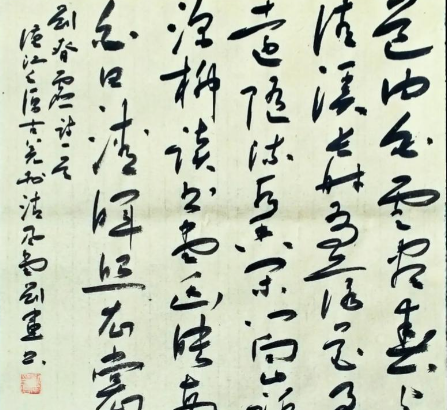 道由白雲盡春与
清溪长時有落花至
遠随流水香闲门向山路
深柳读书堂幽映每
白日清暉照衣裳
刘眘虚诗一首